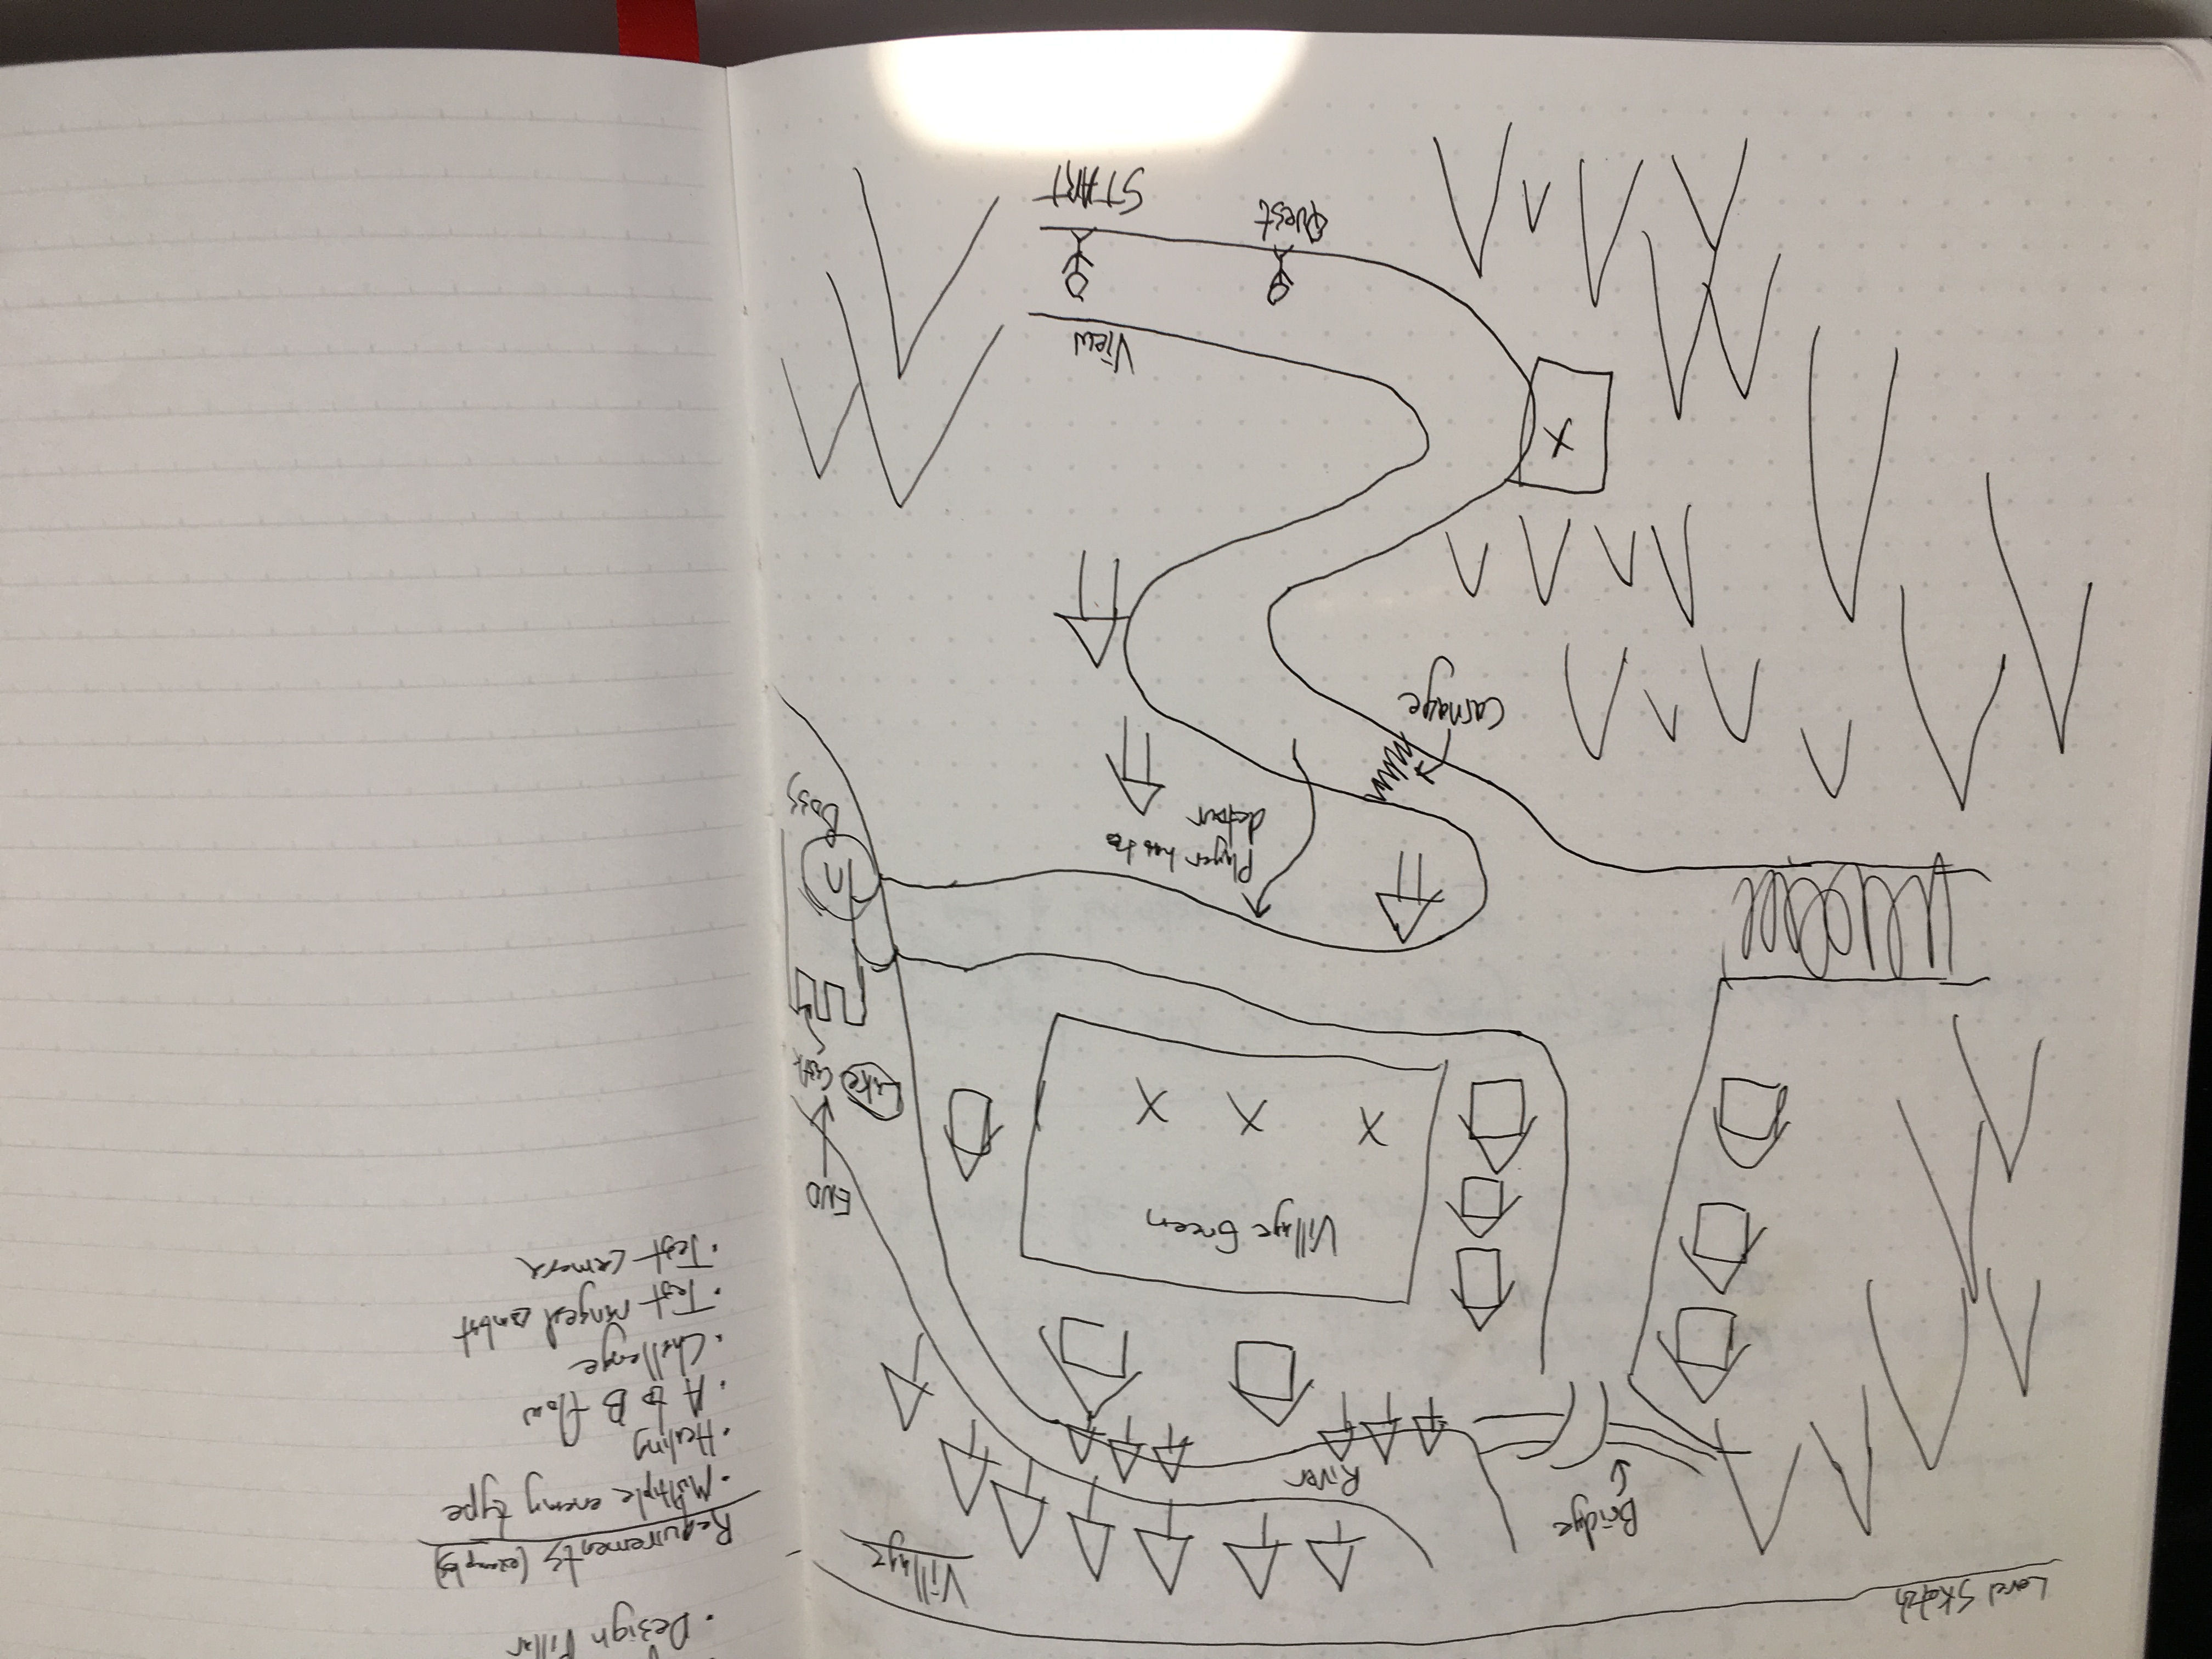 Level Sketch
Village
Bridge
River
Village Green
X X X
END
Lake
Castle
Player has to
detour
Boss
Carnage
X
View
Quest
START
· Design Pillar
Requirements (examples)
· Multiple enemy type
· Healing
· A to B flow
· Challenge
· Test ranged combat
· Test camera